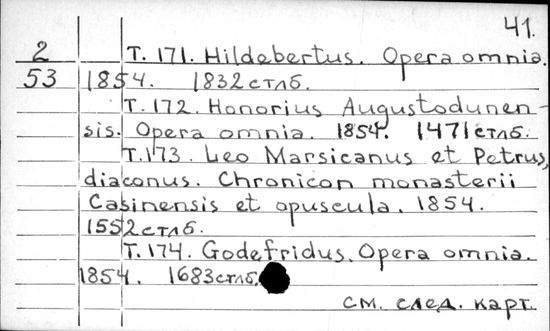 41.
2 Т. 171. Hildebertus. Opera omnia.
53 1854. 1832 стлб.
Т. 172. Honorius Augustodunen-
sis. Opera omnia. 1854. 1471 стлб.
Т. 173. Leo Marsicanus et Petrus,
diaconus. Chronicon monasterii
Casinensis et opuscula. 1854.
1552 стлб.
Т. 174. Godefridus. Opera omnia.
1854. 1683 стлб.
см. след. карт.